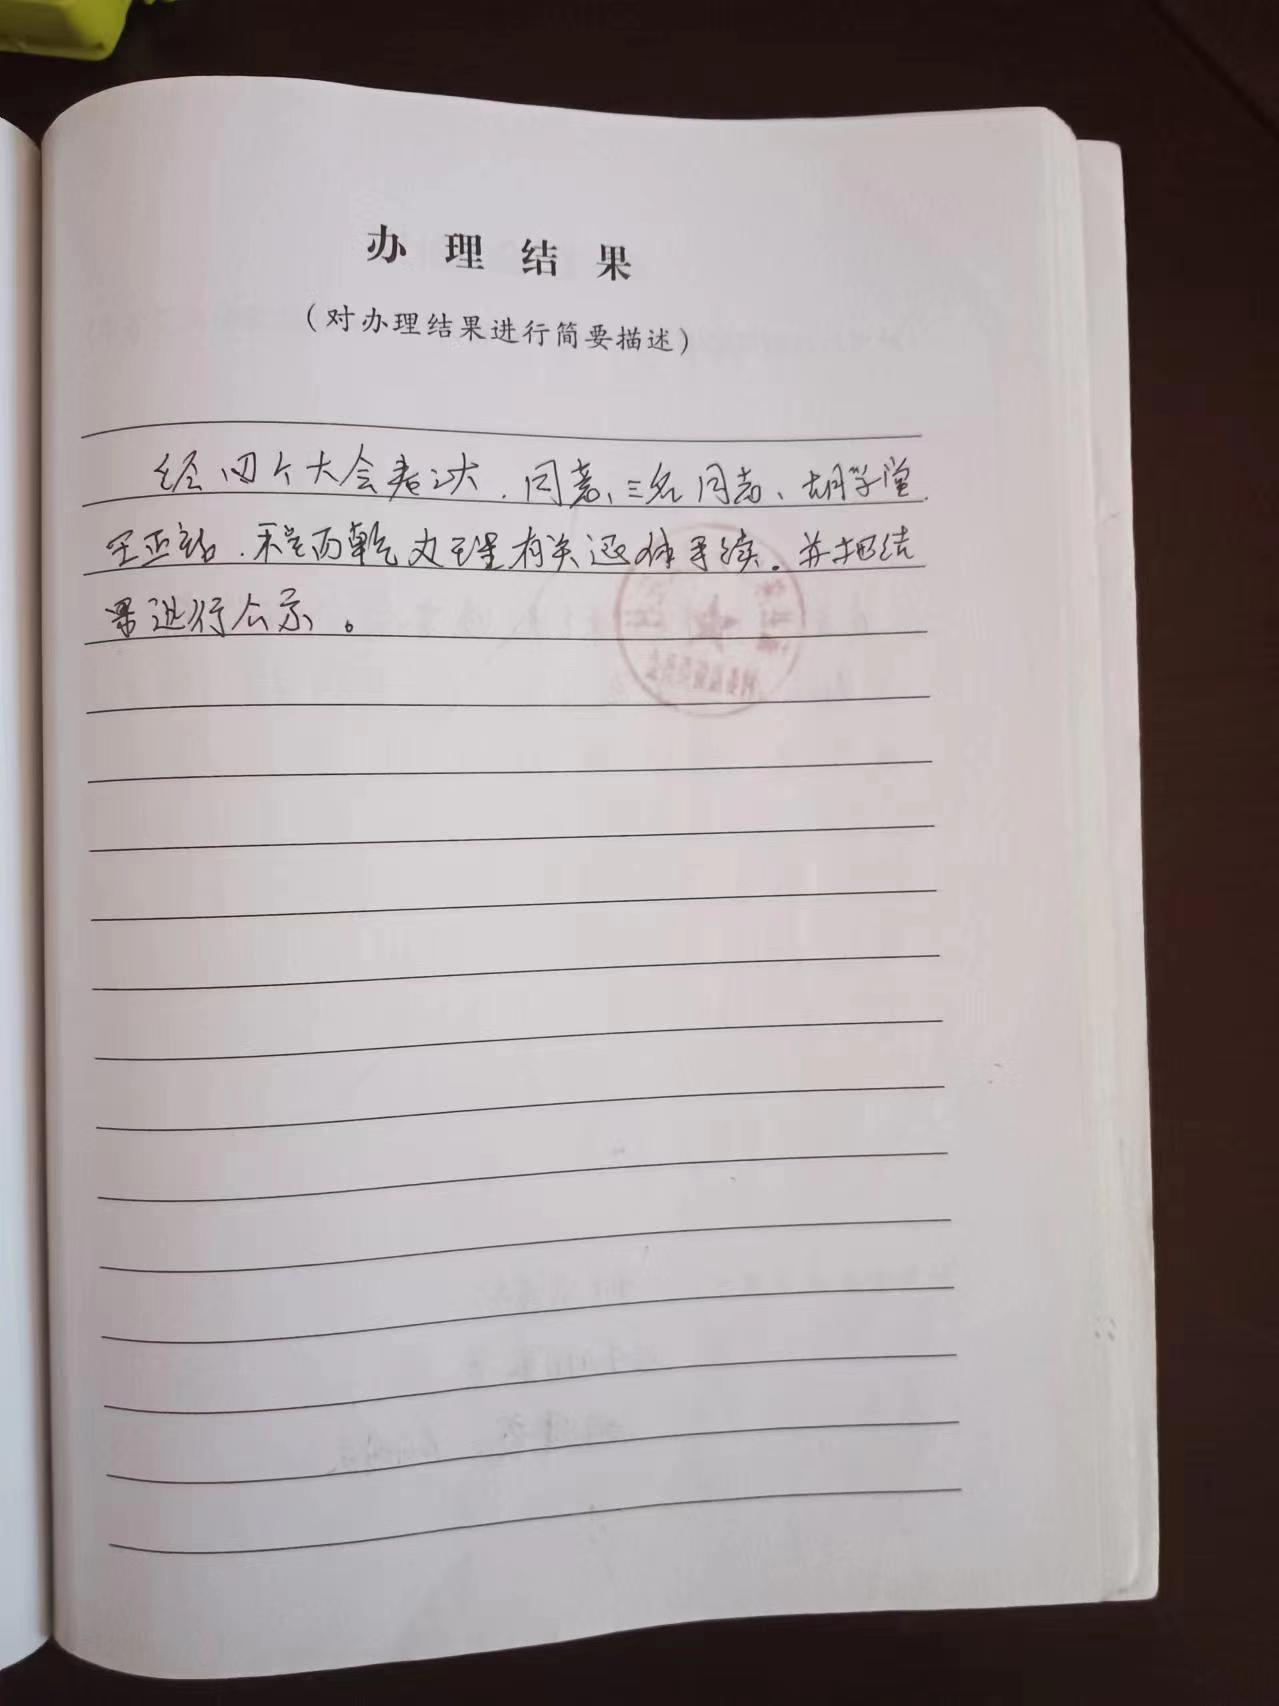 办理结果
（对办理结果进行简要描述）
经四个大会表决，同意、三名同志、胡学堂、
王亚 办理有关退休手续。并把结
果进行公示。